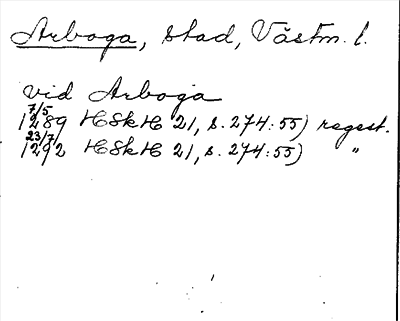 Arboga, stad, Västm. l.
vid Arboga
7/5
1289 HSkH 21, s. 274: 55) regest.
23/7
1292 HSkH 21, s. 274: 55) "